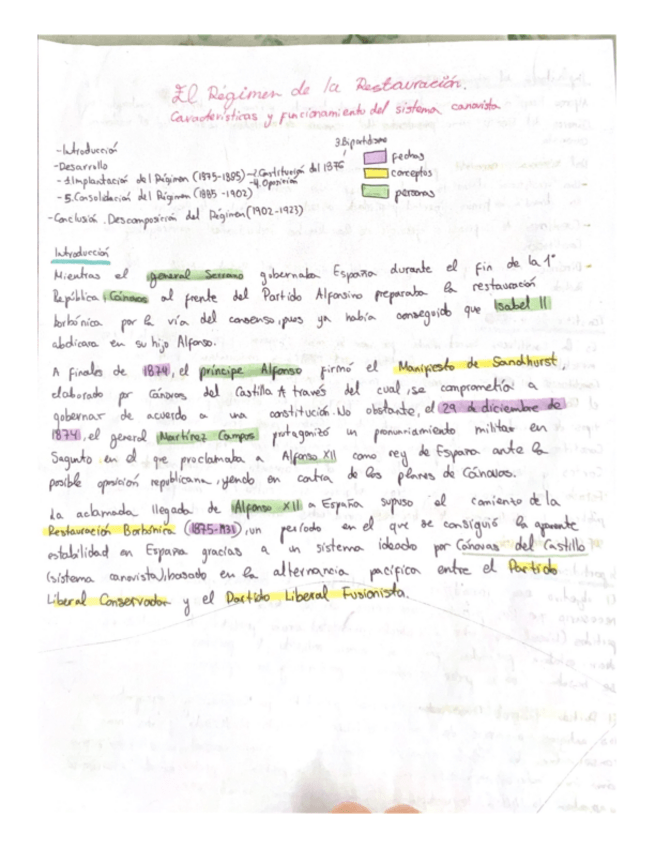 El Régimen de la Restauración.
Características y funcionamiento del sistema canovista
3.Bipartidismo
-Introducción
-Desarrollo
-1.Implantación del Régimen (1875-1885) -2.Constitución del 1876
-4.Oposición
-5.Consolidación del Régimen (1885-1902)
-Conclusión. Descomposición del Régimen (1902-1923)
fechas
conceptos
personas
Introducción
Mientras el general Serrano gobernaba España durante el fin de la 1ª
República, Cánovas al frente del Partido Alfonsino preparaba la restauración
borbónica por la vía del consenso, pues ya había conseguido que Isabel II
abdicara en su hijo Alfonso.
A finales de 1874, el príncipe Alfonso firmó el Manifiesto de Sandhurst,
elaborado por Cánovas del Castillo A través del cual, se comprometía a
gobernar de acuerdo a una constitución. No obstante, el 29 de diciembre de
1874, el general Martínez Campos protagonizó un pronunciamiento militar en
Sagunto en el que proclamaba a Alfonso XII como rey de España ante la
posible oposición republicana, yendo en contra de los planes de Cánovas.
La aclamada llegada de Alfonso XII a España supuso el comienzo de la
Restauración Borbónica (1875-1931), un período en el que se consiguió la aparente
estabilidad en España gracias a un sistema ideado por Cánovas del Castillo
(sistema canovista), basado en la alternancia pacífica entre el Partido
Liberal Conservador y el Partido Liberal Fusionista.